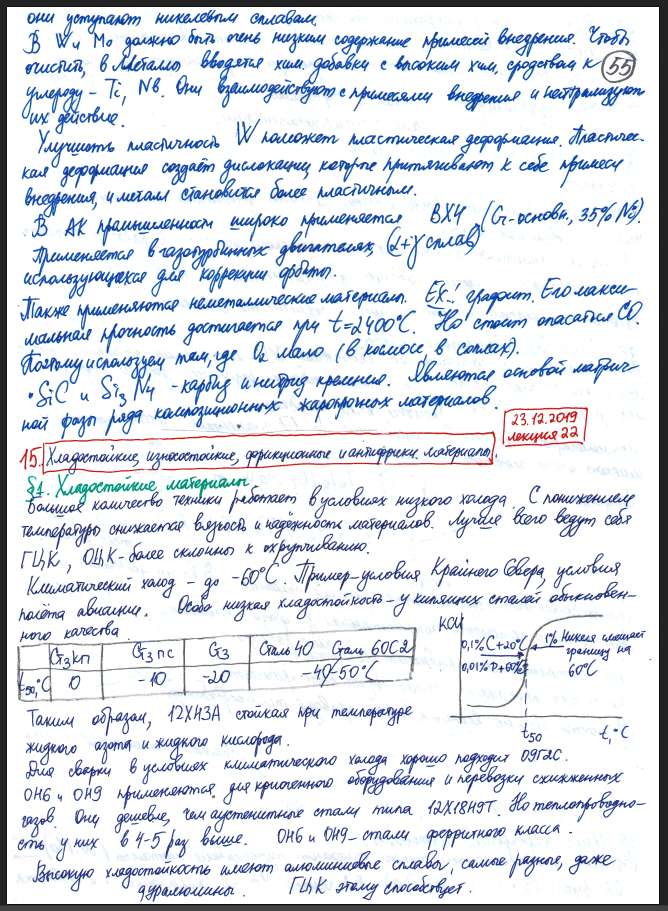 они уступают никелевым сплавам.
В W и Mo должно быть очень низким содержание примесей внедрения. Чтобы
очистить, в металлы вводятся хим. добавки с высоким хим. сродством к
55
углероду - Ti, Nb. Они взаимодействуют с примесями внедрения и нейтрализуют
их действие.
Улучшить пластичность W поможет пластическая деформация. Пластичес-
кая деформация создаёт дислокации, которые притягивают к себе примеси
внедрения, и металл становится более пластичным.
В АК промышленности широко применяется ВХ4 (Cr-основн., 35% Ni).
Применяется в газотурбинных двигателях, (α+γ сплав)
использующихся для коррекции орбиты.
Также применяются неметаллические материалы. EX.: графит. Его макси-
мальная прочность достигается при t=2400°C. Но стоит опасаться CO.
Поэтому используем там, где O2 мало (в космосе, в соплах).
• SiC и Si3N4 - карбид и нитрид кремния. Являются основой матрич-
ной фазы ряда композиционных жаропрочных материалов.
23.12.2019
лекция 22
15. Хладостойкие, износостойкие, фрикционные и антифрикц. материалы.
§1. Хладостойкие материалы.
Большое количество техники работает в условиях низкого холода. С понижением
температуры снижается вязкость и надёжность материалов. Лучше всего ведут себя
ГЦК, ОЦК - более склонны к охрупчиванию.
Климатический холод - до -60°C. Пример - условия Крайнего Севера, условия
полёта авиации. Особо низкая хладостойкость - у кипящих сталей обыкновен-
ного качества.
Ст3кп Ст3пс Ст3 Сталь 40 Сталь 60С2
t50,°C 0 -10 -20 -40/-50°C
KCU
0,1% C +20°C
0,01% P +60°C
1% Никеля смещает
границу на
60°C
t50 t,°C
Таким образом, 12ХН3А стойкая при температуре
жидкого азота и жидкого кислорода.
Для сварки в условиях климатического холода хорошо подходит 09Г2С.
ОН6 и ОН9 применяются для криогенного оборудования и перевозки сжиженных
газов. Они дешевле, чем аустенитные стали типа 12Х18Н9Т. Но теплопроводно-
сть у них в 4-5 раз выше. ОН6 и ОН9 - стали ферритного класса.
Высокую хладостойкость имеют алюминиевые сплавы, самые разные, даже
дуралюмины. ГЦК этому способствует.